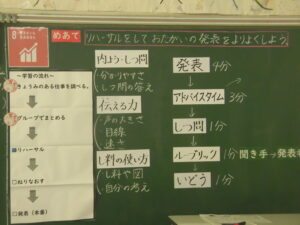 8
めあて
リハーサルをして おたがいの発表をよりよくしよう。
～学習の流れ～
きょうみのある仕事を調べる。
グループでまとめる
リハーサル
ねりなおす
発表(本番)
内よう・しつ問
・分かりやすさ
・しつ問の答え
伝える力
・声の大きさ
・目線
・速さ
し料の使い方
・し料や図
・自分の考え
発表 4分
↓
アドバイスタイム 3分
↓
しつ問 1分
↓
ルーブリック 1分 聞き手→発表
↓
いどう 1分